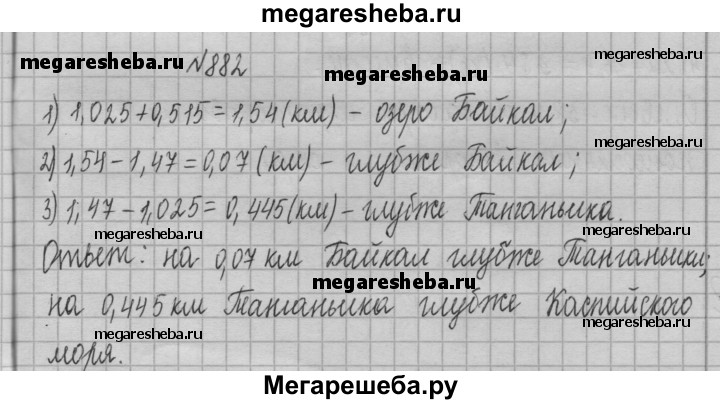 megaresheba.ru
megaresheba.ru №882 megaresheba.ru megaresheba.ru
1) 1,025+0,515=1,54(км) – озеро Байкал;
megaresheba.ru
2) 1,54–1,47=0,07(км) – глубже Байкал;
3) 1,47–1,025=0,445(км) – глубже Танганьика.
megaresheba.ru megaresheba.ru
Ответ: на 0,07 км Байкал глубже Танганьики;
megaresheba.ru
на 0,445 км Танганьика глубже Каспийского
megaresheba.ru megaresheba.ru
моря.
Мегарешеба.ру